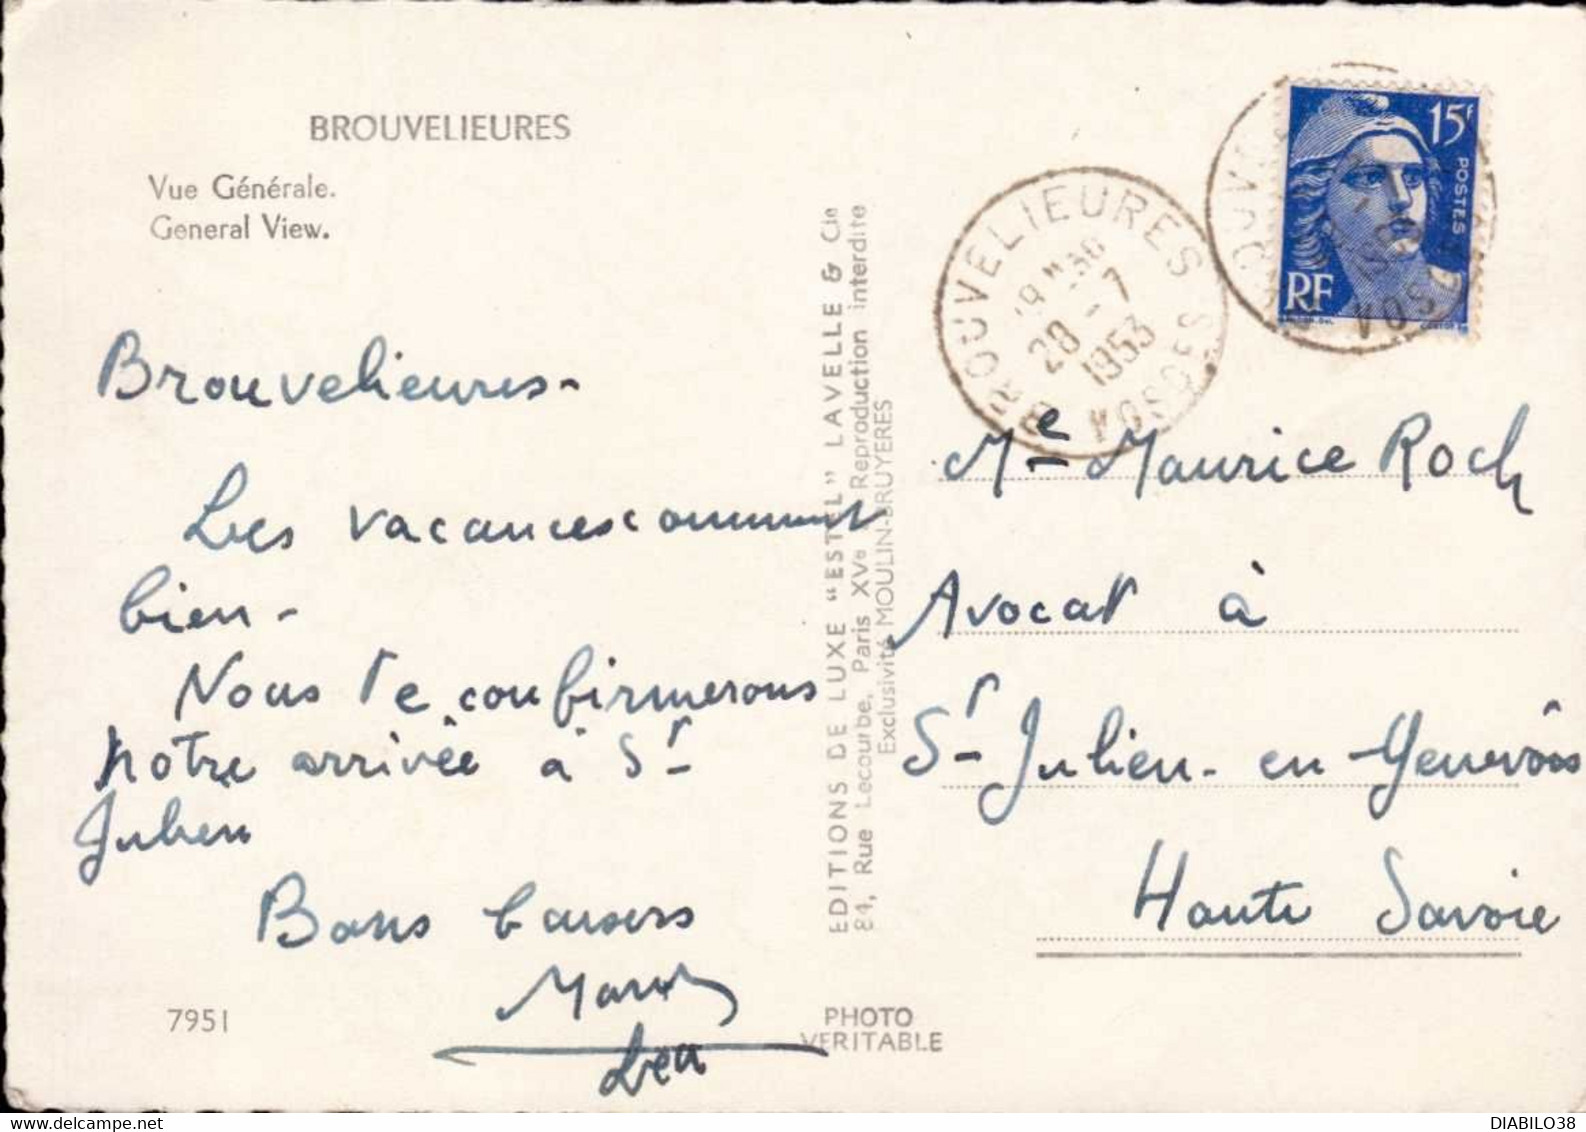 BROUVELIEURES
Vue Générale.
General View.
Brouvelieures-
Les vacances commencent
bien-
Nous te confirmerons
notre arrivée à St
Julien
Bons baisers
Léa
7951
EDITIONS DE LUXE "ESTEL" LAVELLE & Cie
84, Rue Lecourbe, Paris XVe Reproduction interdite
Exclusivité MOULIN-BRUYERES
PHOTO
VERITABLE
BROUVELIEURES VOSGES
28-7
1953
15F
POSTES
RF
Me Maurice Roch
Avocat à
St Julien-en-Genevois
Haute Savoie
DIABILO38